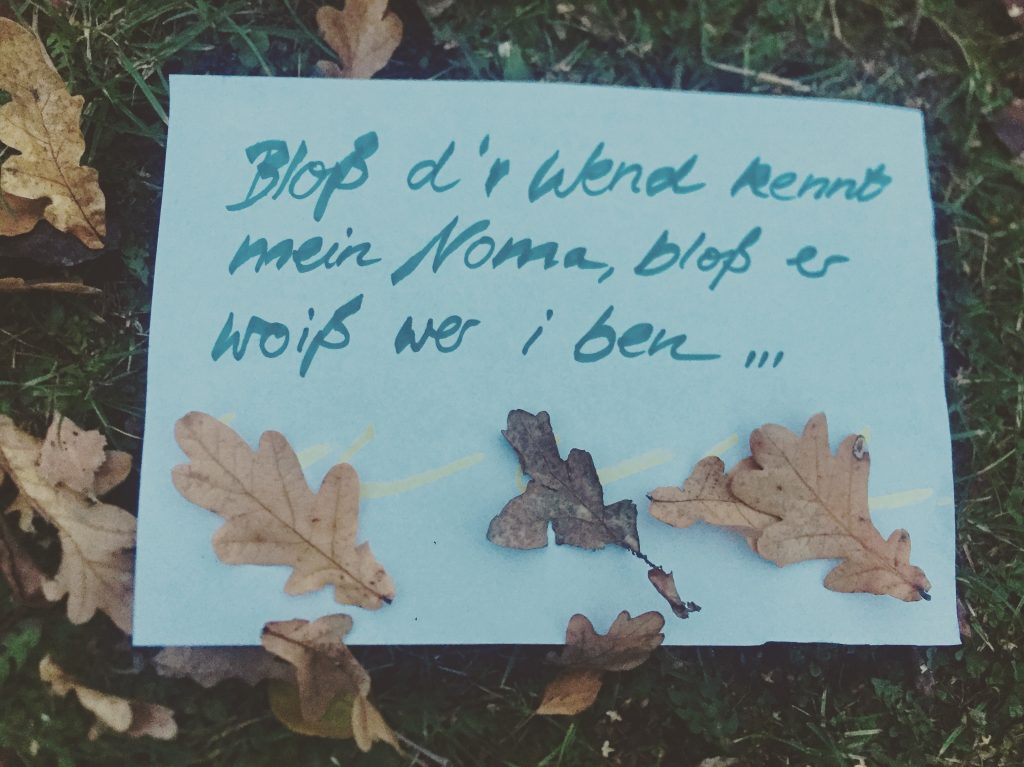 Bloß d'r Wend kennt
mein Noma, bloß er
woiß wer i ben ...